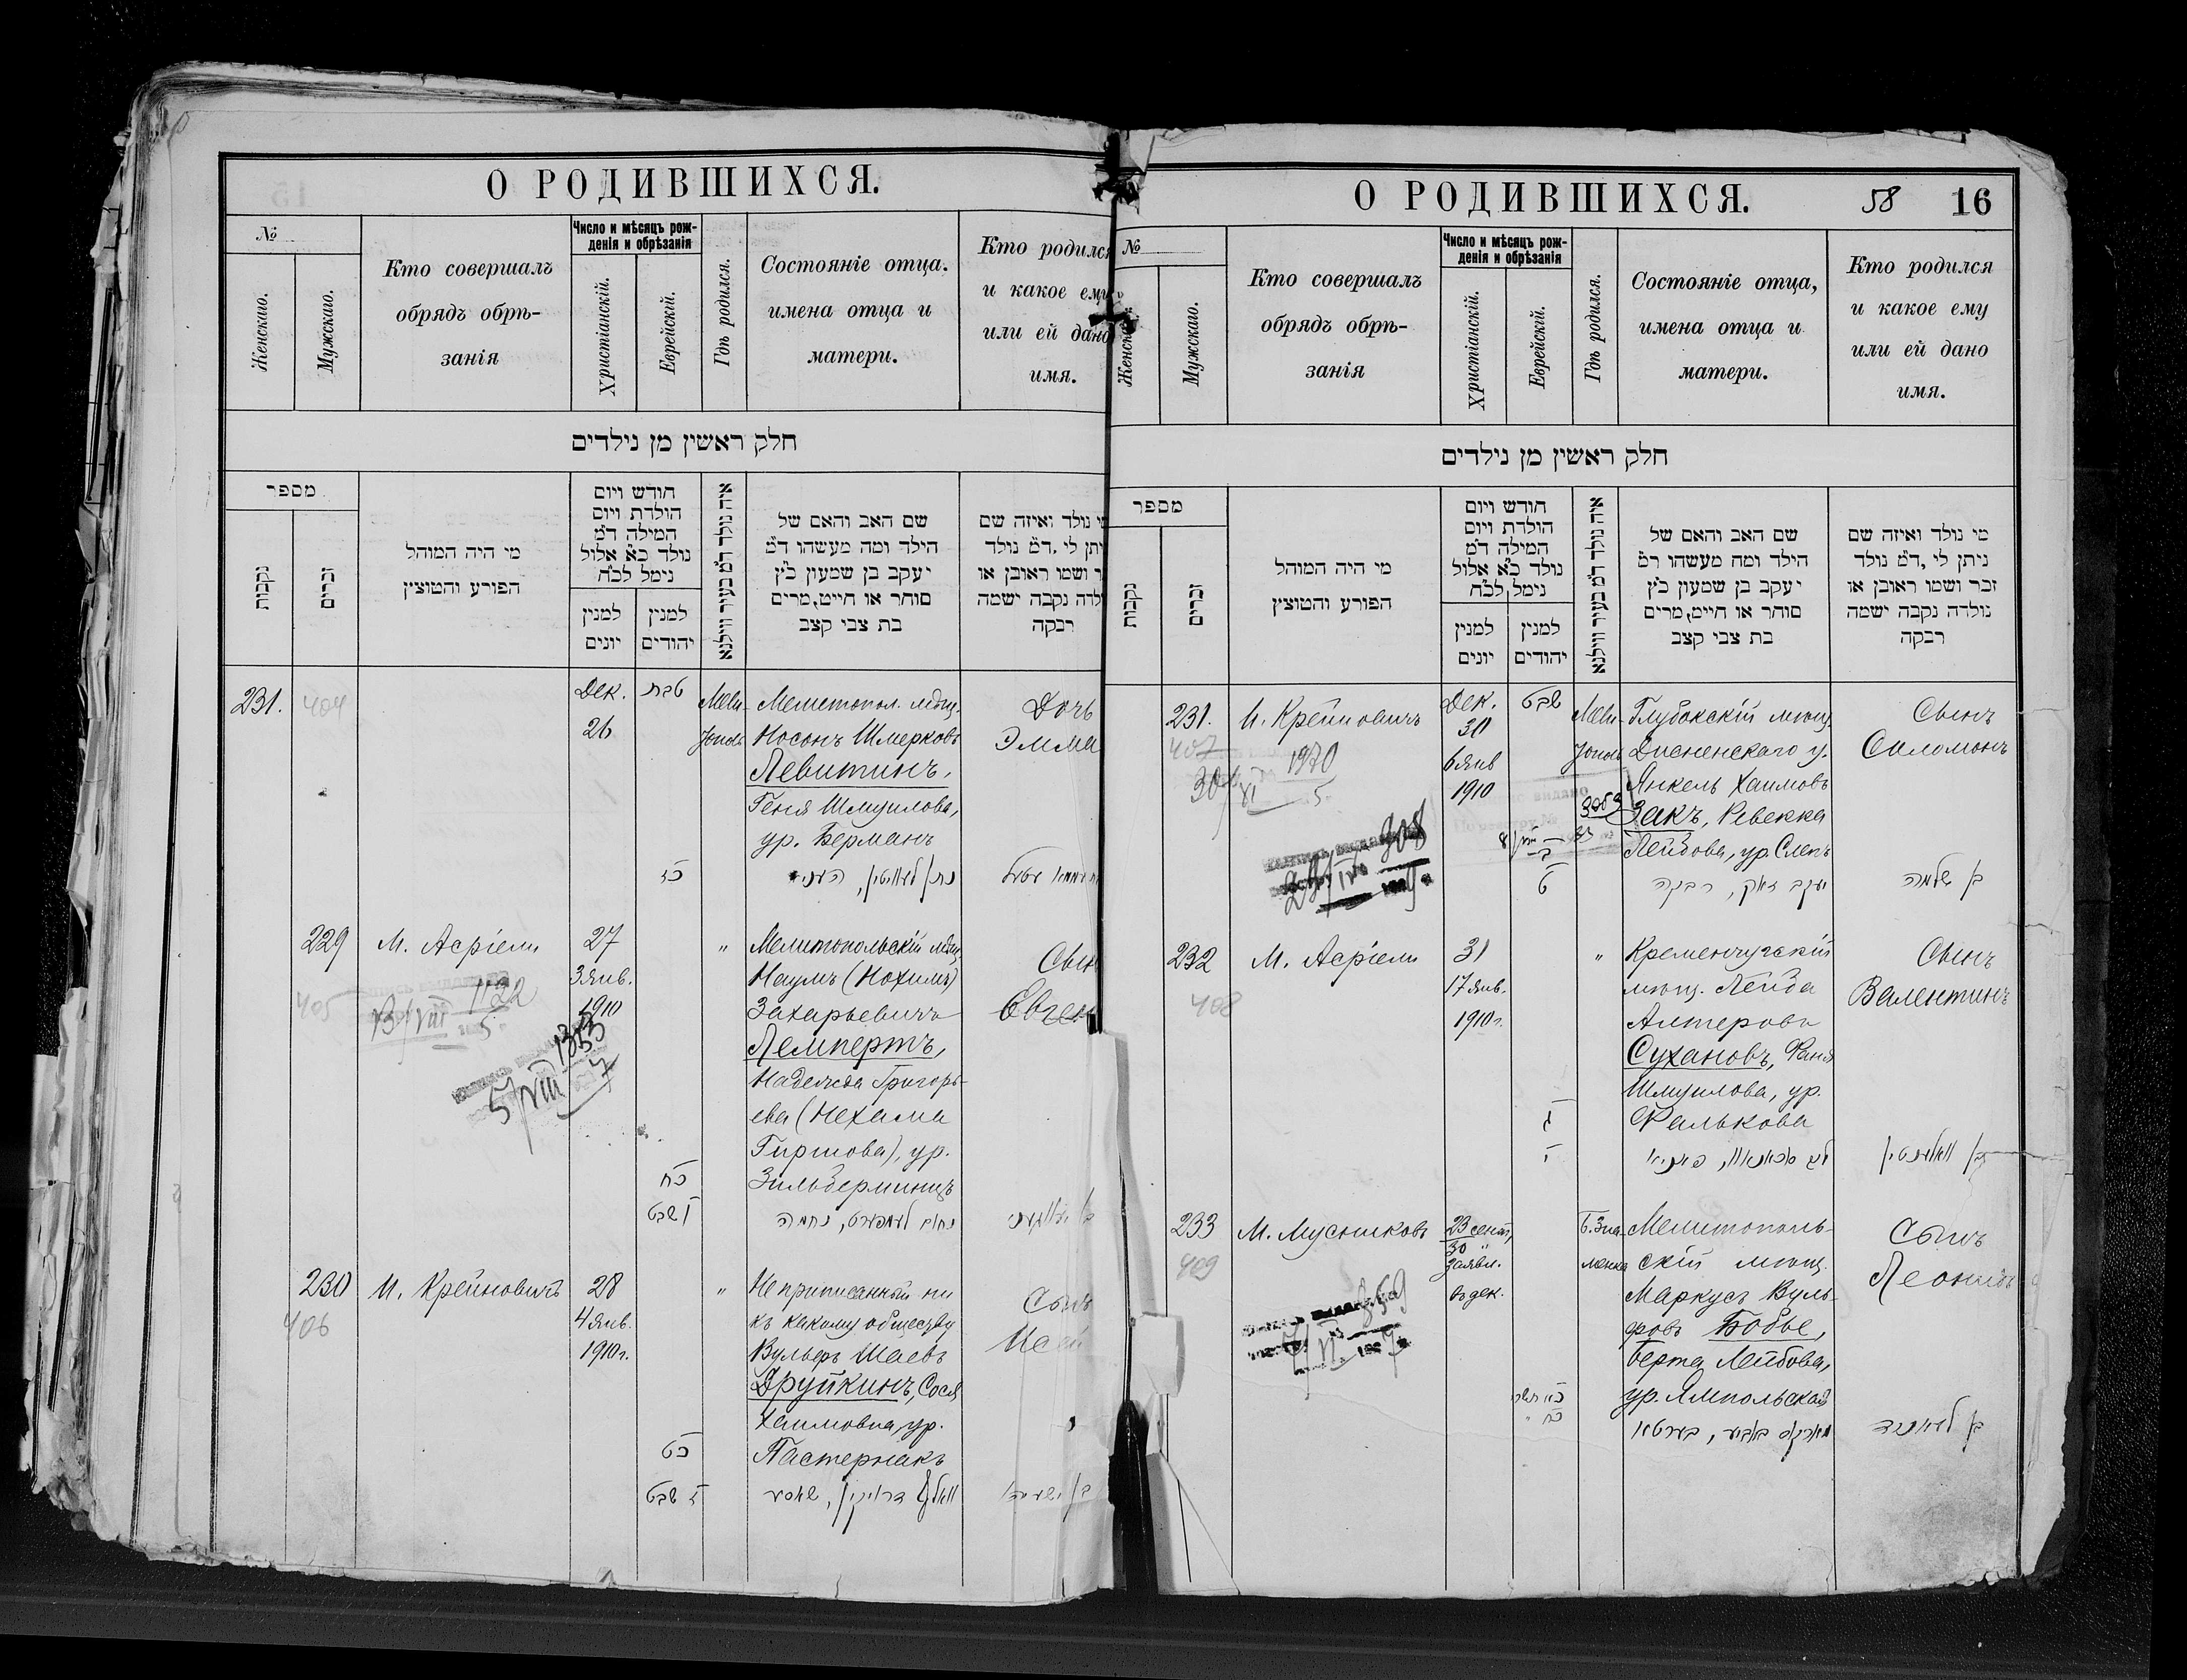 О РОДИВШИХСЯ.
№
Женскаго.
Мужскаго.
Кто совершалъ
обрядъ обрѣ-
занія
Число и мѣсяцъ рож-
денія и обрѣзанія
Христіанскій.
Еврейскій.
Гдѣ родился.
Состояніе отца.
имена отца и
матери.
Кто родился
и какое ему
или ей дано
имя.
חלק ראשין מן נילדים
מספר
נקבות
זכרים
מי היה המוהל
הפורע והמוצץ
חודש ויום
הולדת ויום
המילה ד״מ
נולד כ״א אלול
נימל לכ״ח
למנין
יונים
למנין
יהודים
איה נולד ד״מ בעיר ווילנא
שם האב והאם של
הילד ומה מעשהו ד״מ
יעקב בן שמעון כ״ץ
סוחר או חייט, מרים
בת צבי קצב
נולד ואיזה שם
יתן לי, ד״מ נולד
ושמו ראובן או
נקבה ישמה
רבקה
231.
404
Дек.
26
טבת
Мели-
тополь
Мелитопол. мѣщ.
Носонъ Шмерковъ
Левитинъ,
Геня Шмуилова,
ур. Берманъ
Дочь
Эмма
229
405
М. Асріели
27
3 янв.
1910
"
Мелитопольскій мѣщ.
Наумъ (Нохимъ)
Захарьевичъ
Лемпертъ,
Надежда Григорь-
ева (Нехама
Гиршова), ур.
Зильберминцъ
כח
שבט
נחום לעמפערט, נחמה
13/VIII 1122
5/VIII 1353
230
406
И. Крейновичъ
28
4 янв.
1910 г.
"
Не приписанный ни
къ какому обществу
Вульфъ Шаевъ
Друйкинъ, Сося
Хаимовна, ур.
Пастернакъ
Сынъ
כט
שבט
О РОДИВШИХСЯ.
58
16
№
Женскаго.
Мужскаго.
Кто совершалъ
обрядъ обрѣ-
занія
Число и мѣсяцъ рож-
денія и обрѣзанія
Христіанскій.
Еврейскій.
Гдѣ родился.
Состояніе отца,
имена отца и
матери.
Кто родился
и какое ему
или ей дано
имя.
חלק ראשין מן נילדים
מספר
נקבות
זכרים
מי היה המוהל
הפורע והמוצץ
חודש ויום
הולדת ויום
המילה ד״מ
נולד כ״א אלול
נימל לכ״ח
למנין
יונים
למנין
יהודים
איה נולד ד״מ בעיר ווילנא
שם האב והאם של
הילד ומה מעשהו ד״מ
יעקב בן שמעון כ״ץ
סוחר או חייט, מרים
בת צבי קצב
מי נולד ואיזה שם
ניתן לי, ד״מ נולד
זכר ושמו ראובן או
נולדה נקבה ישמה
רבקה
231.
407
И. Крейновичъ
Дек.
30
6 янв
1910
שבט
Мели-
тополь
Глубокскій мѣщ.
Дисненскаго у.
Янкель Хаимовъ
Закъ, Ревекка
Лейбова, ур. Слепъ
יעקב זאק, רבקה
ט
Сынъ
Соломонъ
בן שלמה
1970
308
232
408
М. Асріели
31
17 янв.
1910 г.
"
Кременчугскій
мѣщ. Лейба
Алтеровъ
Сухановъ, Фаня
Шмуилова, ур.
Фалькова
Сынъ
Валентинъ
בן וואלענטין
233
409
М. Мусниковъ
23 сент,
30 "
заявл.
въ дек.
Б. Зна-
менка
Мелитополь-
скій мѣщ.
Маркусъ Вуль-
фовъ Бобве,
Берта Лейбова,
ур. Ямпольская
Сынъ
Леонидъ
בן לעאניד
859